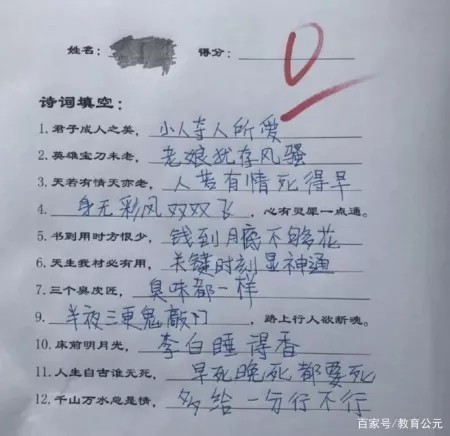 姓名： 得分： 0
诗词填空：
1.君子成人之美，小人夺人所爱
2.英雄宝刀未老，老娘犹存风骚
3.天若有情天亦老，人若有情死得早
4.身无彩风双双飞，心有灵犀一点通。
5.书到用时方恨少，钱到月底不够花
6.天生我材必有用，关键时刻显神通
7.三个臭皮匠，臭味都一样
9.半夜三更鬼敲门，路上行人欲断魂。
10.床前明月光，李白睡得香
11.人生自古谁无死，早死晚死都要死
12.千山万水总是情，多给一分行不行
百家号/教育公元